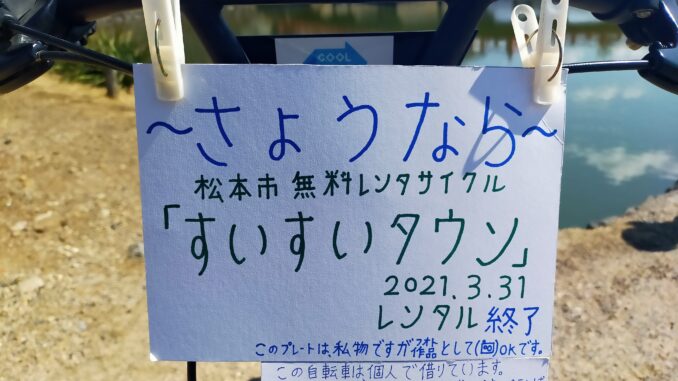 COOL
～さょうなら～
松本市 無料レンタサイクル
「すいすいタウン」
2021.3.31
レンタル終了
このプレートは、私物ですが作品として OKです。
この自転車は個人で借りています。